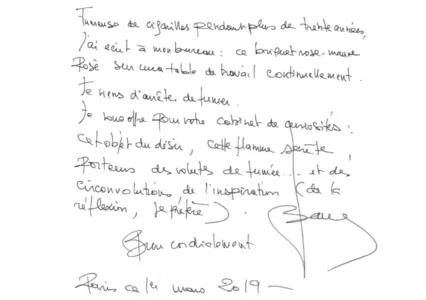 Fumeuse de cigarilles pendant plus de trente années,
J'ai écrit à mon bureau : ce briquet rose-mauve
Posé sur ma table de travail continuellement.
Je viens d'arrêter de fumer.
Je vous offre pour votre cabinet de curiosités :
cet objet du désir, cette flamme secrète
Porteuse des volutes de fumée... et des
circonvolutions de l'inspiration (de la
réflexion, je préfère).
Bien cordialement
Paris ce 1er mars 2019 —